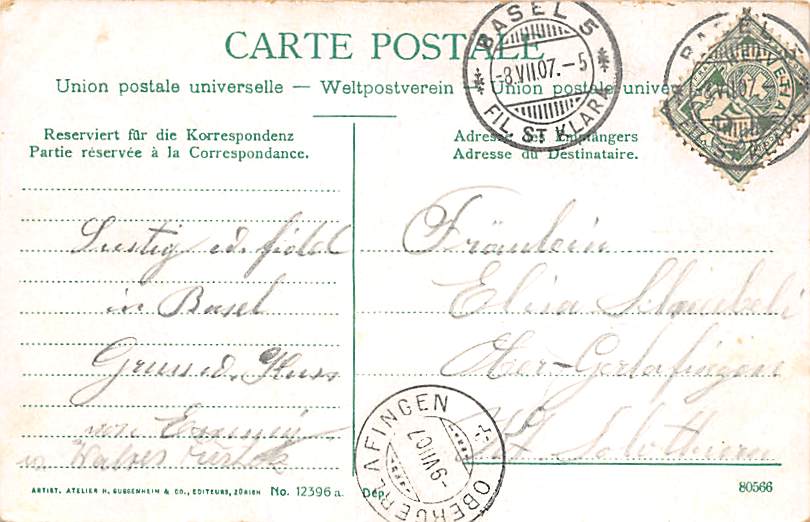 CARTE POSTALE
Union postale universelle — Weltpostverein — Union postale univer
BASEL 5
-8.VII.07.-5
FIL. ST KLARA
Reserviert für die Korrespondenz
Partie réservée à la Correspondance.
Adresse des Empfängers
Adresse du Destinataire.
Lustig u. fidel
in Basel
Gruss u. Kuss
von
Fräulein
Elisa
Ober-Gerlafingen
Kt. Solothurn
OBERGERLAFINGEN
-9.VII.07
ARTIST. ATELIER H. GUGGENHEIM & CO., EDITEURS, ZÜRICH No. 12396 a. Dép.
80566